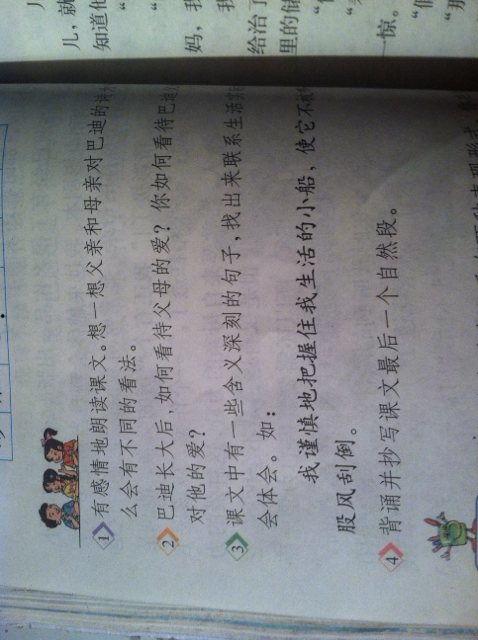 儿，就
知道他
妈，我
我
给治了
里的储
惊。
1 有感情地朗读课文。想一想父亲和母亲对巴迪的诗
么会有不同的看法。
2 巴迪长大后，如何看待父母的爱？你如何看待巴迪
对他的爱？
3 课文中有一些含义深刻的句子，找出来联系生活实
会体会。如：
我谨慎地把握住我生活的小船，使它不
股风刮倒。
4 背诵并抄写课文最后一个自然段。